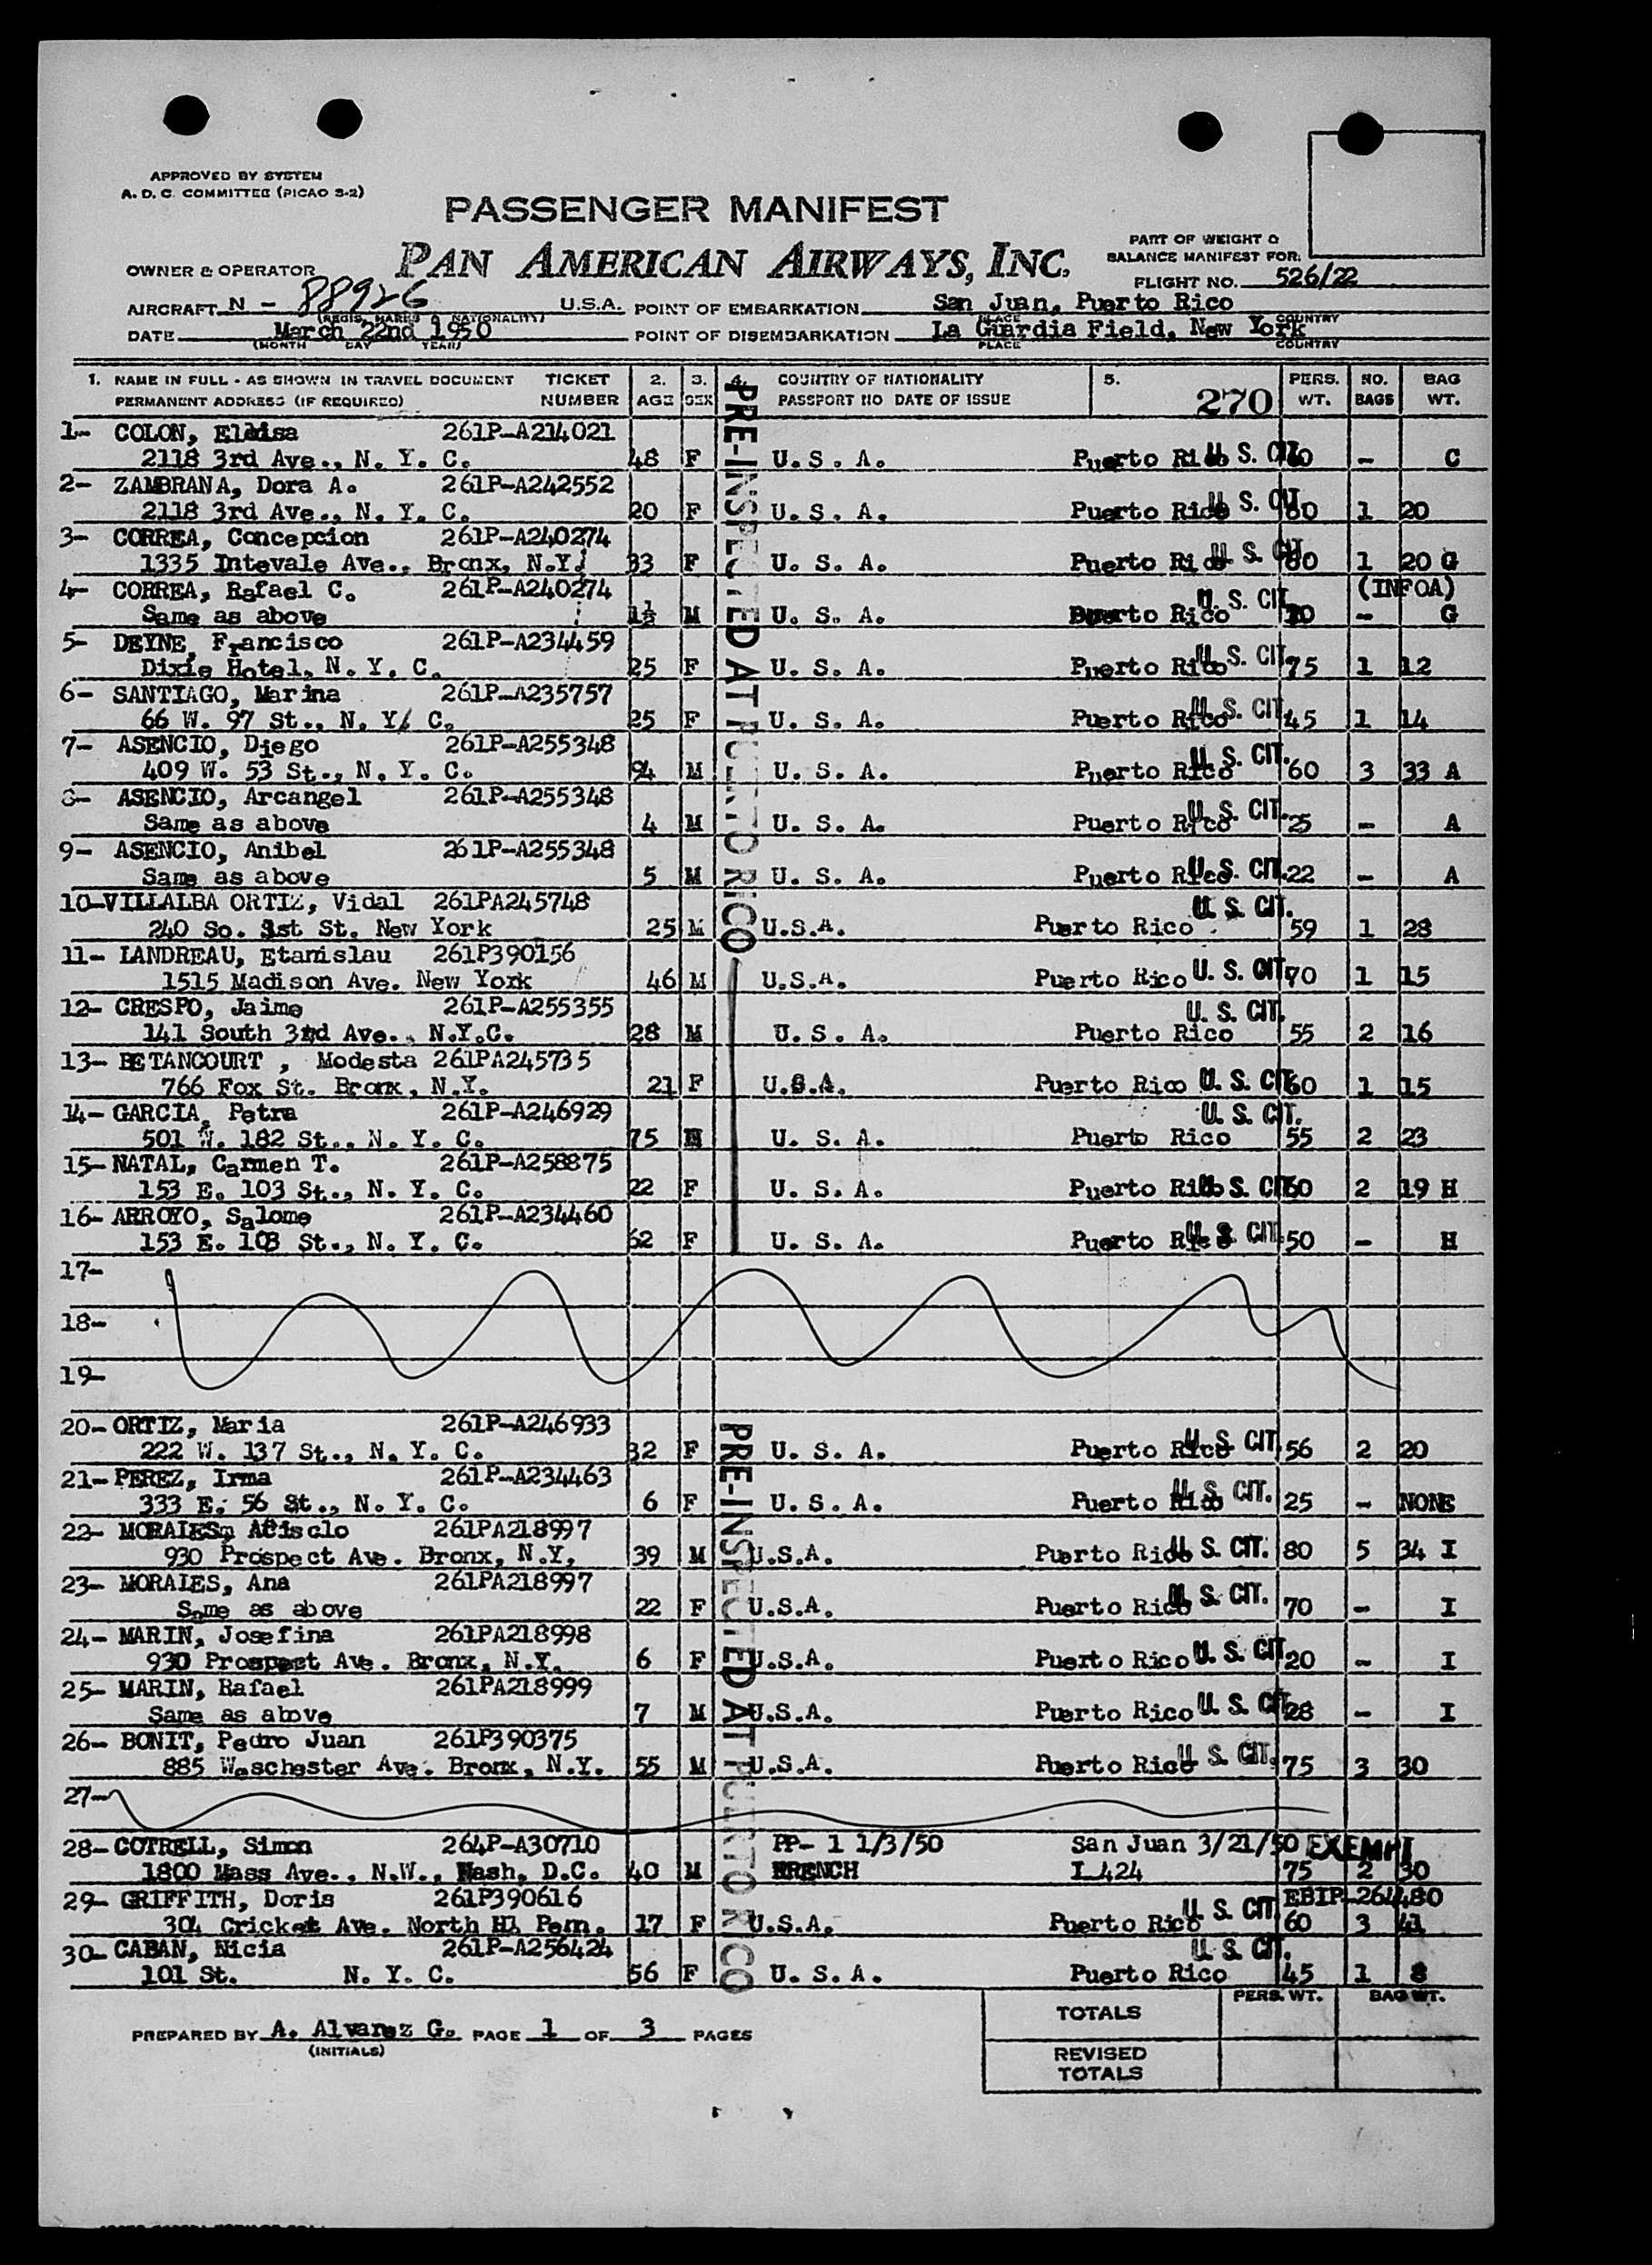 APPROVED BY SYSTEM
A. D. C. COMMITTEE (PICAO S-2)
PASSENGER MANIFEST
PAN AMERICAN AIRWAYS, INC.
PART OF WEIGHT &
BALANCE MANIFEST FOR:
OWNER & OPERATOR
FLIGHT NO. 526/22
AIRCRAFT N - 88926 U.S.A. POINT OF EMBARKATION San Juan, Puerto Rico
(REGIS. MARKS & NATIONALITY) PLACE COUNTRY
DATE March 22nd 1950 POINT OF DISEMBARKATION La Guardia Field, New York
(MONTH DAY YEAR) PLACE COUNTRY
1. NAME IN FULL - AS SHOWN IN TRAVEL DOCUMENT TICKET 2. 3. 4. COUNTRY OF NATIONALITY 5. PERS. NO. BAG
PERMANENT ADDRESS (IF REQUIRED) NUMBER AGE SEX PASSPORT NO DATE OF ISSUE 270 WT. BAGS WT.
PRE-INSPECTED AT PUERTO RICO
1- COLON, 261P-A214021
2118 3rd Ave., N. Y. C. 48 F U.S.A. Puerto Rico U. S. CIT. - C
2- ZAMBRANA, Dora A. 261P-A242552
2118 3rd Ave., N. Y. C. 20 F U.S.A. Puerto Rico U. S. CIT. 1 20
3- CORREA, Concepcion 261P-A240274
1335 Intevale Ave., Bronx, N.Y. 33 F U. S. A. Puerto Rico U. S. CIT. 1 20 G
4- CORREA, Rafael C. 261P-A240274 (INFOA)
Same as above 1½ M U. S. A. Puerto Rico U. S. CIT. - G
5- DEYNE, Francisco 261P-A234459
Dixie Hotel, N. Y. C. 25 F U. S. A. Puerto Rico U. S. CIT. 75 1 12
6- SANTIAGO, Marina 261P-A235757
66 W. 97 St., N. Y/ C. 25 F U. S. A. Puerto Rico U. S. CIT. 45 1 14
7- ASENCIO, Diego 261P-A255348
409 W. 53 St., N. Y. C. M U. S. A. Puerto Rico U. S. CIT. 60 3 33 A
8- ASENCIO, Arcangel 261P-A255348
Same as above 4 M U. S. A. Puerto Rico U. S. CIT. 25 - A
9- ASENCIO, Anibel 261P-A255348
Same as above 5 M U. S. A. Puerto Rico U. S. CIT. 22 - A
10-VILLALBA ORTIZ, Vidal 261PA245748
240 So. 1st St. New York 25 M U.S.A. Puerto Rico U. S. CIT. 59 1 28
11- LANDREAU, Etanislau 261P390156
1515 Madison Ave. New York 46 M U.S.A. Puerto Rico U. S. CIT. 70 1 15
12- CRESPO, Jaime 261P-A255355
141 South 3rd Ave., N.Y.C. 28 M U.S.A. Puerto Rico U. S. CIT. 55 2 16
13- BETANCOURT , Modesta 261PA245735
766 Fox St. Bronx, N.Y. 21 F U.S.A. Puerto Rico U. S. CIT. 60 1 15
14- GARCIA, Petra 261P-A246929
501 W. 182 St., N. Y. C. 75 U. S. A. Puerto Rico U. S. CIT. 55 2 23
15- NATAL, Carmen T. 261P-A258875
153 E. 103 St., N. Y. C. 22 F U. S. A. Puerto Rico U. S. CIT. 60 2 19 H
16- ARROYO, Salome 261P-A234460
153 E. 103 St., N. Y. C. 62 F U. S. A. Puerto Rico U. S. CIT. 50 - H
17-
18-
19-
PRE-INSPECTED AT PUERTO RICO
20- ORTIZ, Maria 261P-A246933
222 W. 137 St., N. Y. C. 32 F U. S. A. Puerto Rico U. S. CIT. 56 2 20
21- PEREZ, Irma 261P-A234463
333 E. 56 St., N. Y. C. 6 F U.S.A. Puerto Rico U. S. CIT. 25 - NONE
22- MORALES, Atisclo 261PA218997
930 Prospect Ave. Bronx, N.Y, 39 M U.S.A. Puerto Rico U. S. CIT. 80 5 34 I
23- MORALES, Ana 261PA218997
Same as above 22 F U.S.A. Puerto Rico U. S. CIT. 70 - I
24- MARIN, Josefina 261PA218998
930 Prospect Ave. Bronx, N.Y. 6 F U.S.A. Puerto Rico U. S. CIT. 20 - I
25- MARIN, Rafael 261PA218999
Same as above 7 M U.S.A. Puerto Rico U. S. CIT. 28 - I
26- BONIT, Pedro Juan 261P390375
885 Weschester Ave. Bronx, N.Y. 55 M U.S.A. Puerto Rico U. S. CIT. 75 3 30
27-
28- COTRELL, Simon 264P-A30710 PP- 1 1/3/50 San Juan 3/21/50 EXEMPT
1800 Mass Ave., N.W., Wash, D.C. 40 M FRENCH I-424 75 2 30
29- GRIFFITH, Doris 261P390616 EBIP-264480
304 Cricket Ave. North Hl Penn. 17 F U.S.A. Puerto Rico U. S. CIT. 60 3 41
30- CABAN, Nicia 261P-A256424
101 St. N. Y. C. 56 F U. S. A. Puerto Rico U. S. CIT. 45 1 8
PERS. WT. BAG WT.
TOTALS
PREPARED BY A. Alvarez G. PAGE 1 OF 3 PAGES
(INITIALS)
REVISED
TOTALS